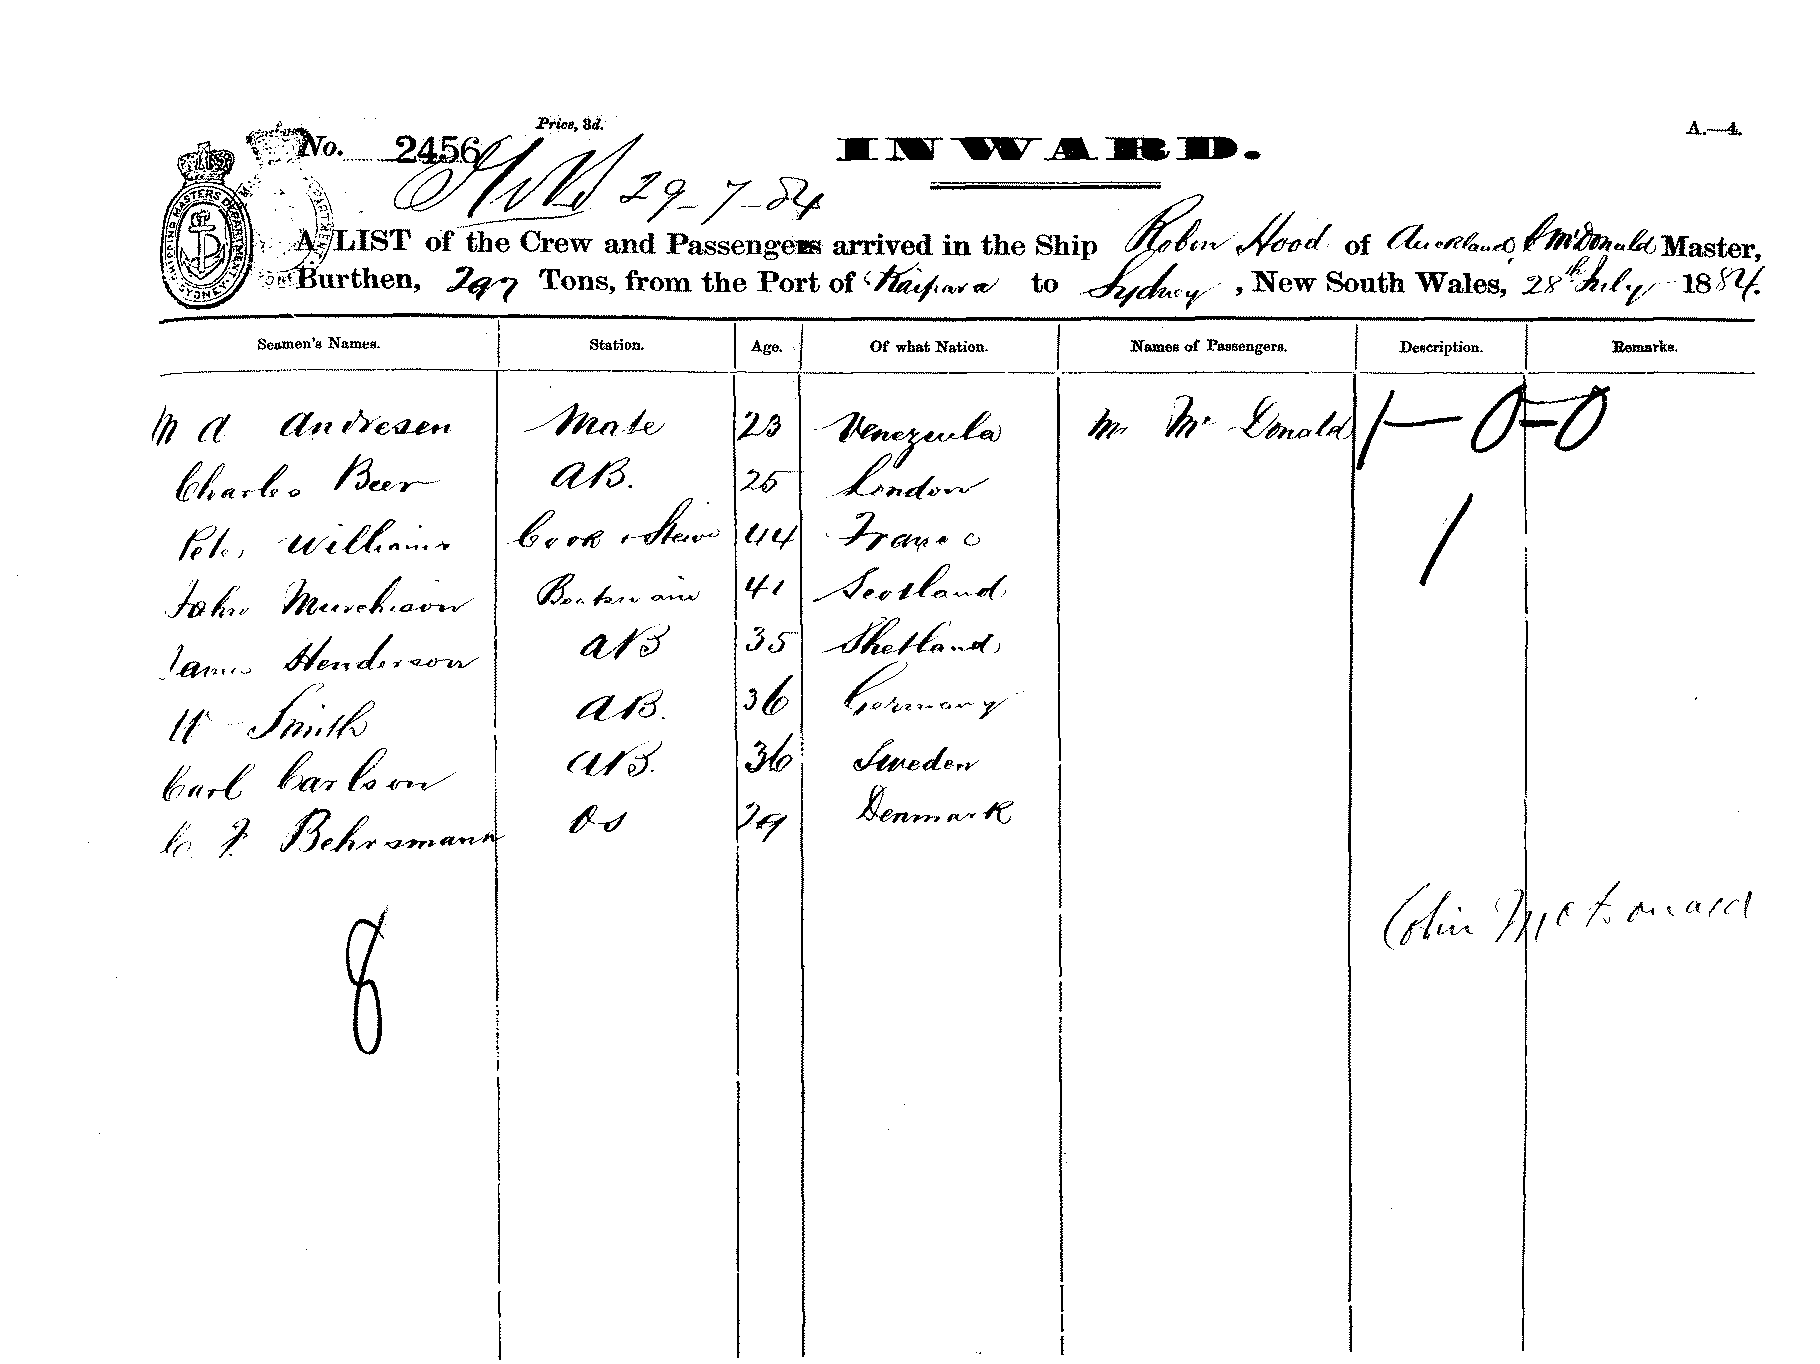 Price, 3d.
No. 2456 INWARD. A.—4.
29-7-84
A LIST of the Crew and Passengers arrived in the Ship Robin Hood of Auckland, C McDonald Master,
Burthen, 297 Tons, from the Port of Kaipara to Sydney, New South Wales, 28th July 1884.
Seamen's Names. Station. Age. Of what Nation. Names of Passengers. Description. Remarks.
M A Andresen Mate 23 Venezuela Mr Mc Donald 1—0—0
Charles Beer AB. 25 London
Peter Williams Cook & Stewd 44 France 1
John Murchison Boatswain 41 Scotland
James Henderson AB 35 Shetland
W Smith AB. 36 Germany
Carl Carlson AB. 36 Sweden
C F Behrsmann OS 29 Denmark
Colin McDonald
8